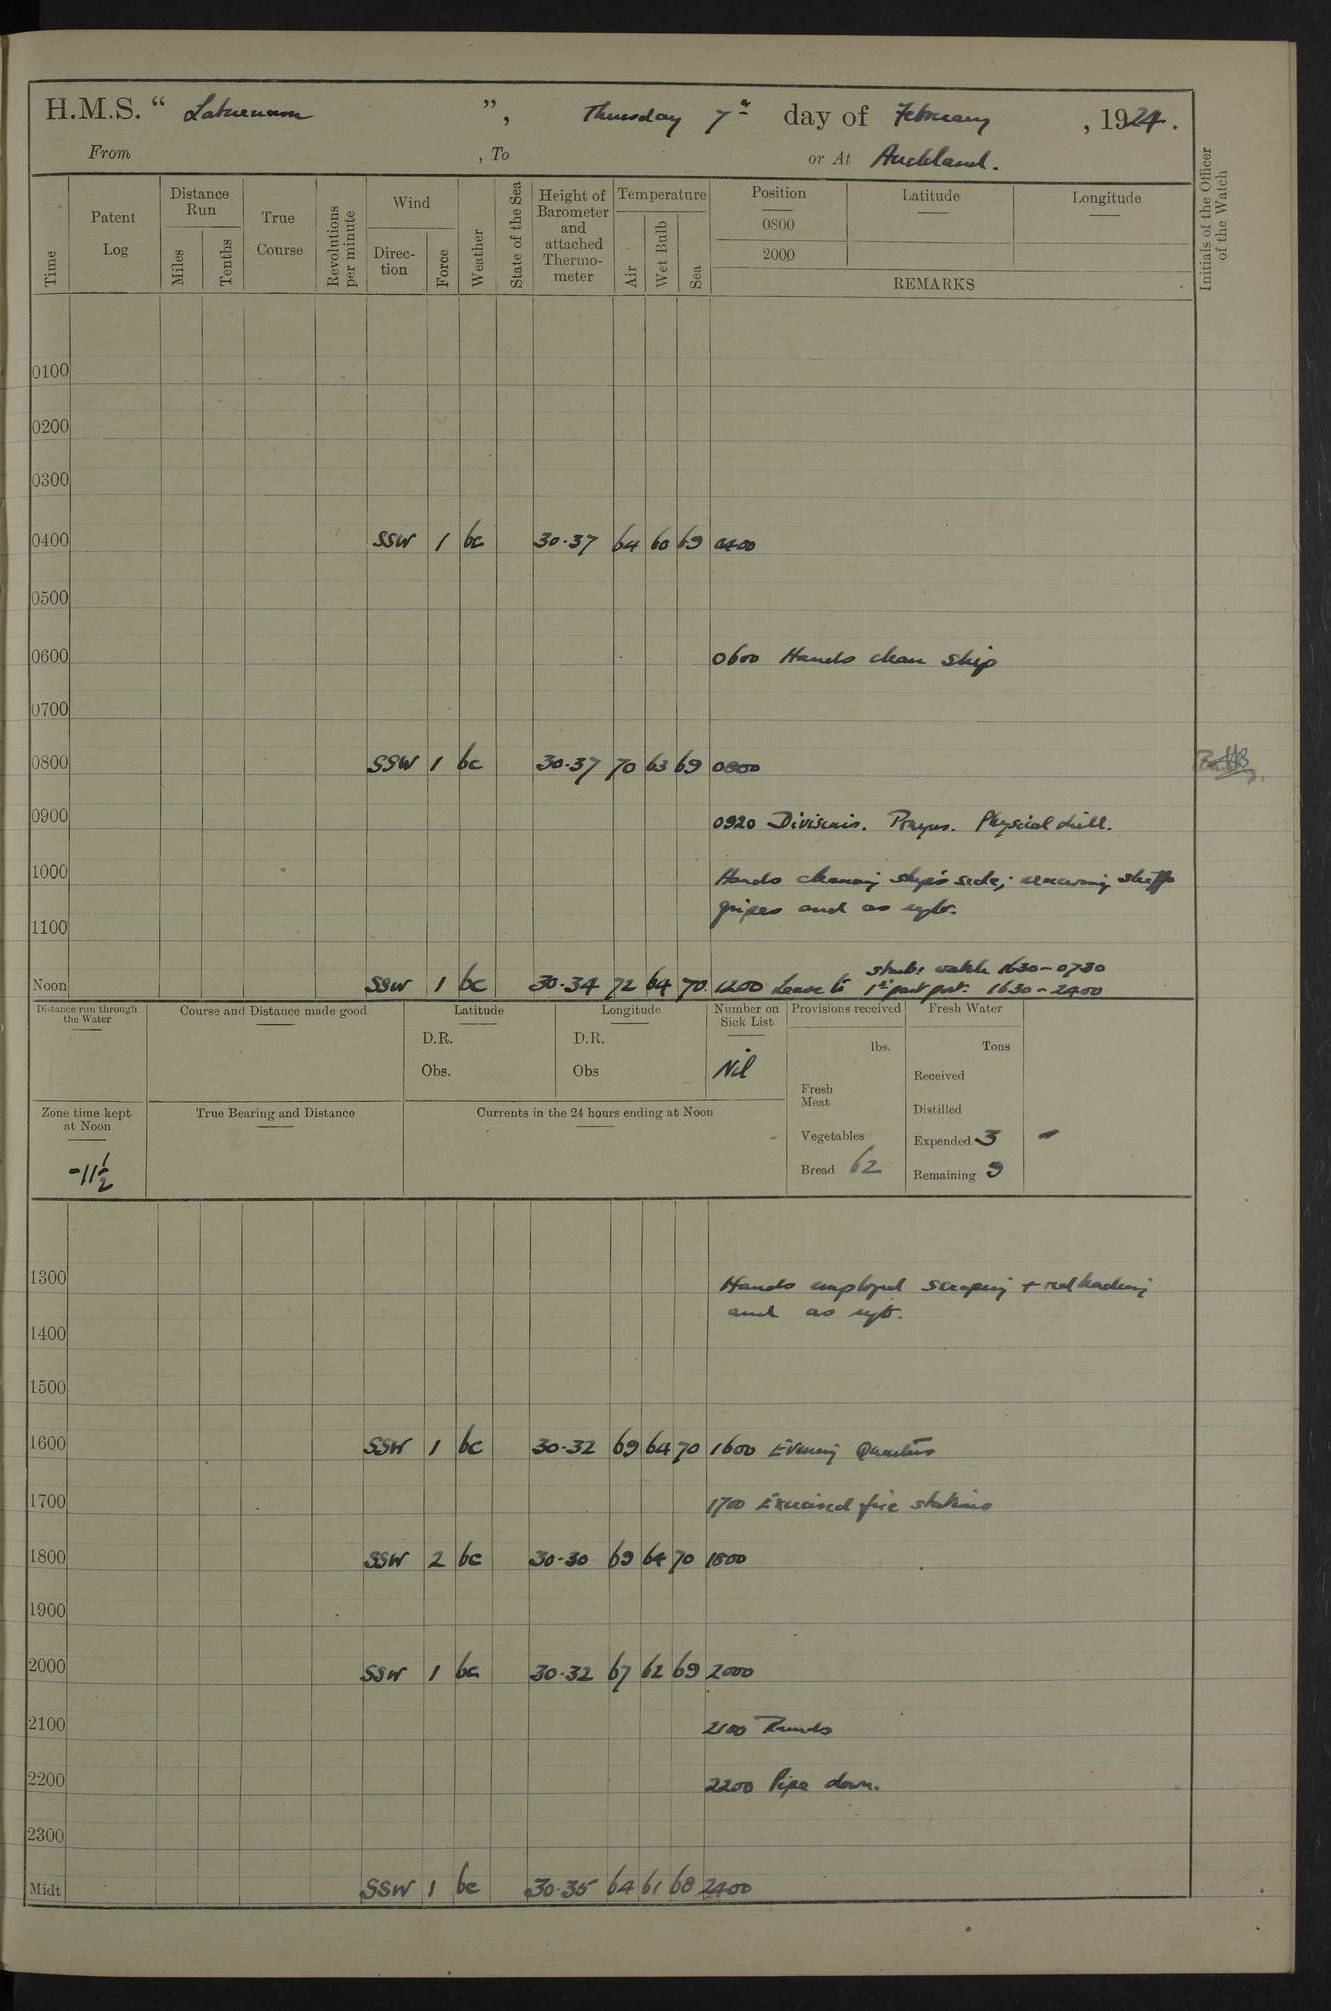 H.M.S. “ Laburnum ”, Thursday 7th day of February, 1924.
From , To or At Auckland.
Time Patent Log Distance Run Miles Tenths True Course Revolutions per minute Wind Direc-tion Force Weather State of the Sea Height of Barometer and attached Thermo-meter Temperature Air Wet Bulb Sea Position 0800 2000 Latitude Longitude REMARKS Initials of the Officer of the Watch
0100
0200
0300
0400 SSW 1 bc 30.37 64 60 69 0400
0500
0600 0600 Hands clean ship
0700
0800 SSW 1 bc 30.37 70 63 69 0800
0900 0920 Divisions. Prayers. Physical drill.
1000 Hands cleaning ship's side; renewing
gripes and as reqte.
1100
Noon SSW 1 bc 30.34 72 64 70 1200 Leave to starbd watch 1630-0730
1st part port 1630-2400
Distance run through the Water Course and Distance made good Latitude Longitude Number on Sick List Provisions received Fresh Water
D.R. D.R. lbs. Tons
Obs. Obs Nil Fresh Meat Received
Zone time kept at Noon True Bearing and Distance Currents in the 24 hours ending at Noon Distilled
Vegetables Expended 3
-11½ Bread 62 Remaining 9
1300 Hands employed scraping + redleading
and as reqte.
1400
1500
1600 SSW 1 bc 30.32 69 64 70 1600 Evening Quarters
1700 1700 Exercised fire stations
1800 SSW 2 bc 30.30 69 64 70 1800
1900
2000 SSW 1 bc 30.32 67 62 69 2000
2100 2100 Rounds
2200 2200 Pipe down.
2300
Midt SSW 1 bc 30.35 64 61 68 2400